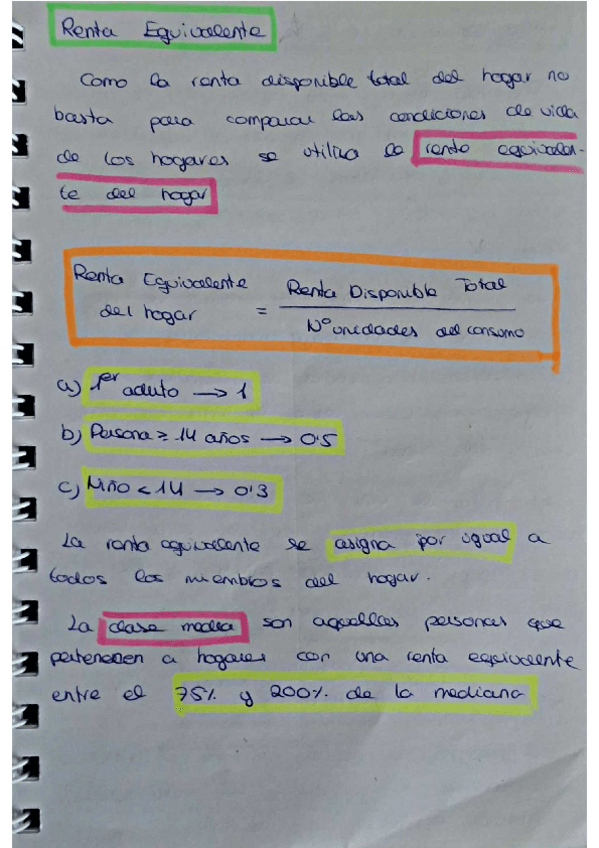 Renta Equivalente
Como la renta disponible total del hogar no
basta para comparar las condiciones de vida
de los hogares se utiliza la renta equivalen-
te del hogar
Renta Equivalente
del hogar = Renta Disponible Total
Nº unidades del consumo
a) 1er aduto → 1
b) Persona ≥ 14 años → 0'5
c) Niño < 14 → 0'3
La renta equivalente se asigna por igual a
todos los miembros del hogar.
La clase media son aquellas personas que
pertenecen a hogares con una renta equivalente
entre el 75% y 200% de la mediana